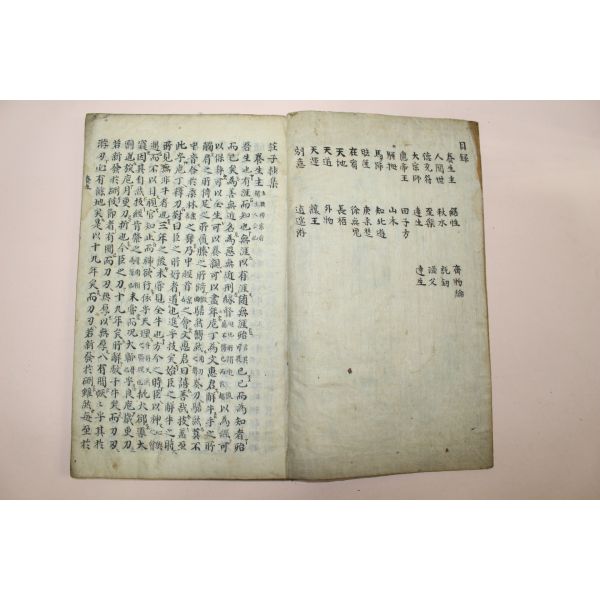 目錄
養生主 繕性 齊物論
人間世 秋水 說劍
德充符 至樂 漁父
大宗師 達生 達生
應帝王 田子方
駢拇 山木
馬蹄 知北遊
胠篋 庚桑楚
在宥 徐無鬼
天地 長梧
天道 外物
天運 讓王
刻意 逍遙遊
莊子抄集
養生主
吾生也有涯而知也無涯以有涯隨無涯殆已已而為知者殆
而已矣為善無近名為惡無近刑緣督以為經可
以保身可以全生可以養親可以盡年庖丁為文惠君解牛手之所
觸肩之所倚足之所履膝之所踦砉然嚮然奏刀騞然莫不
中音合於桑林之舞乃中經首之會文惠君曰譆善哉技盖至
此乎庖丁釋刀對曰臣之所好者道也進乎技矣始臣之解牛之時
所見無非牛者三年之後未嘗見全牛也方今之時臣以神遇
而不以目視官知止而神欲行依乎天理批大郤導大
窾因其固然技經肯綮之未嘗而況大軱乎良庖歲更刀
割也族庖月更刀折也今臣之刀十九年矣所解數千牛矣而刀刃
若新發於硎彼節者有間而刀刃無厚以無厚入有間恢恢乎其於
遊刃必有餘地矣是以十九年矣而刀刃若新發於硎雖然每至於